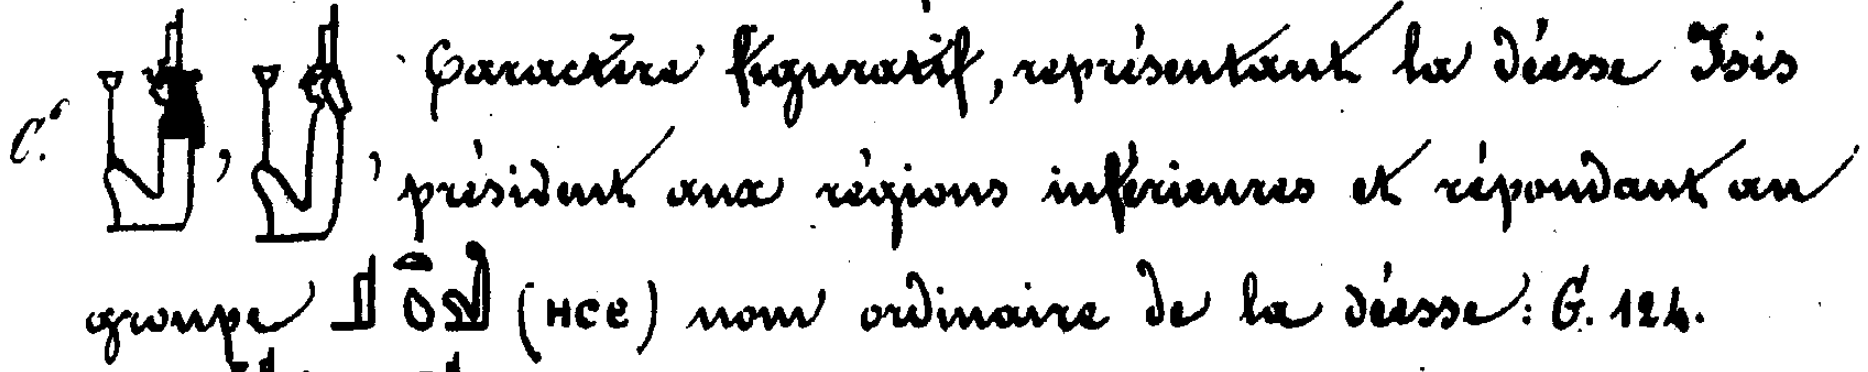 C. 𓁥, 𓁥, Caractère figuratif, représentant la déesse Isis
président aux régions inférieures et répondant au
groupe 𓊨𓏏𓆇𓁐 (ⲎⲤⲈ) nom ordinaire de la déesse : G. 124.